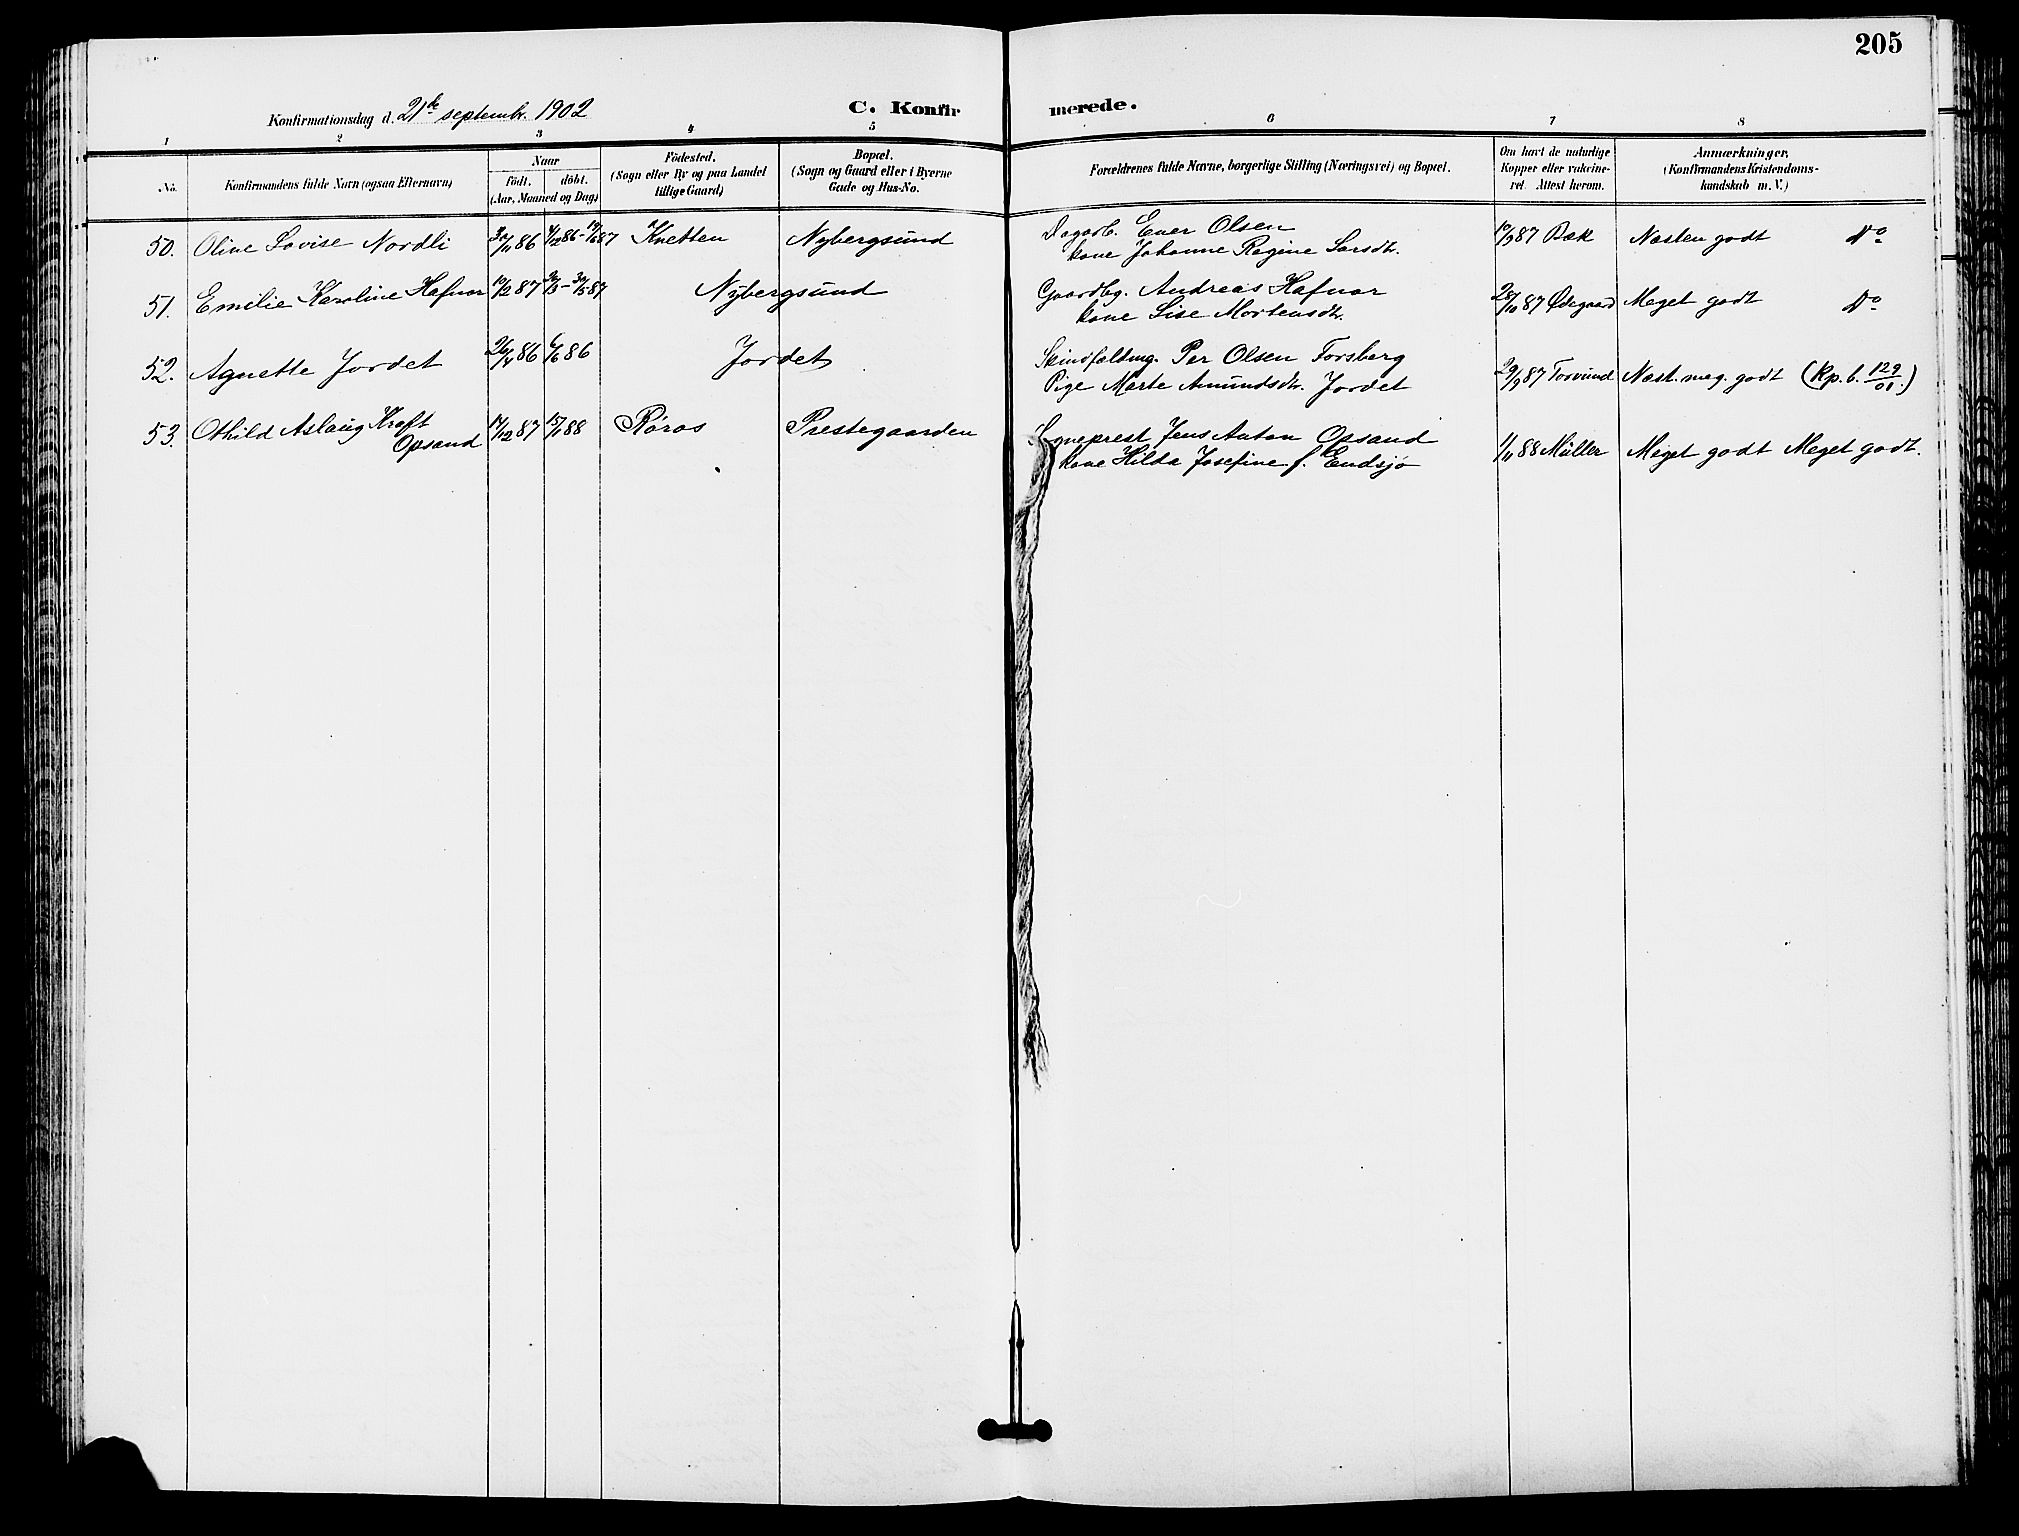 205
Konfirmationsdag d. 21de septembr. 1902
C. Konfirmerede.
1 2 3 4 5 6 7 8
No.
Konfirmandens fulde Navn (ogsaa Efternavn)
Naar
födt. döbt.
(Aar, Maaned og Dag)
Födested.
(Sogn eller By og paa Landet
tillige Gaard)
Bopæl.
(Sogn og Gaard eller i Byerne
Gade og Hus-No.
Forældrenes fulde Navne, borgerlige Stilling (Næringsvei) og Bopæl.
Om havt de naturlige
Kopper eller vakcine-
ret. Attest herom.
Anmærkninger,
(Konfirmandens Kristendoms-
kundskab m. V.)
50. Oline Lovise Nordli 30/11 86 4/12 86 - 87 Knetten Nybergsund
Dagarb. Ener Olsen
kone Johanne Regine Larsdtr.
17/9 87 Bæk Næsten godt Do
51. Emilie Karoline Hafnor 10/2 87 - 87 Nybergsund
Gaardbg. Andreas Hafnor
kone Lise Mortensdtr.
28/10 87 Ødegaard Meget godt Do
52. Agnette Jordet 26/4 86 6/6 86 Jordet
Skindfældmg. Per Olsen Forsberg
Pige Marte Amundsdtr. Jordet
29/9 87 Torsund Næst. meg. godt (kp. b. 129/01.)
53. Othild Aslaug Kraft
Opsand
14/12 87 15/1 88 Røros Prestegaarden
Sogneprest Jens Anton Opsand
kone Hilda Josefine f. Eudsjø
1/11 88 Müller Meget godt Meget godt.